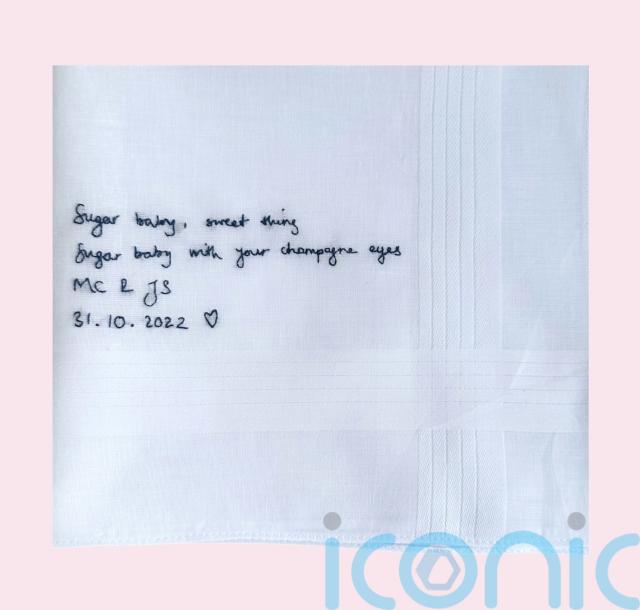 Sugar baby, sweet thing
Sugar baby with your champagne eyes
MC & JS
31.10.2022 ♡
iconic